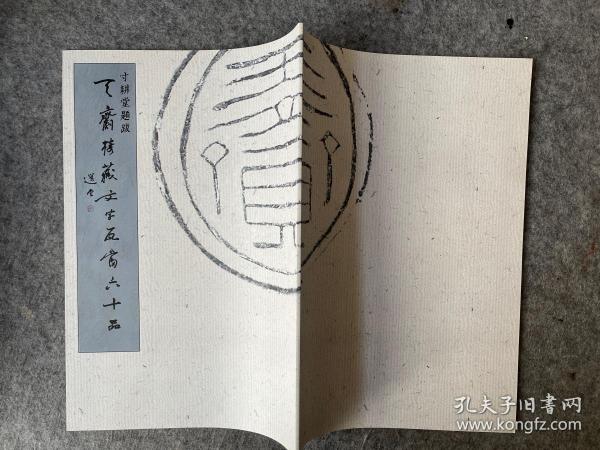 寸耕堂題跋
樓藏文字瓦當六十品
選堂
孔夫子旧書网
www.kongfz.com